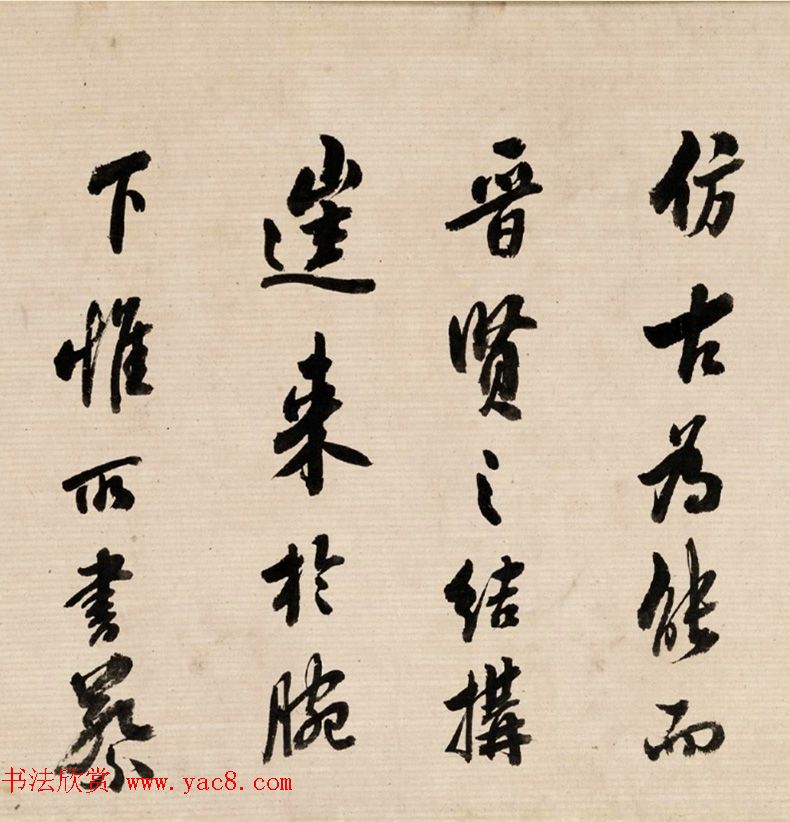 仿古為能而
晋賢之結搆
来於腕
下惟所書蔡
书法欣赏 www.yac8.com